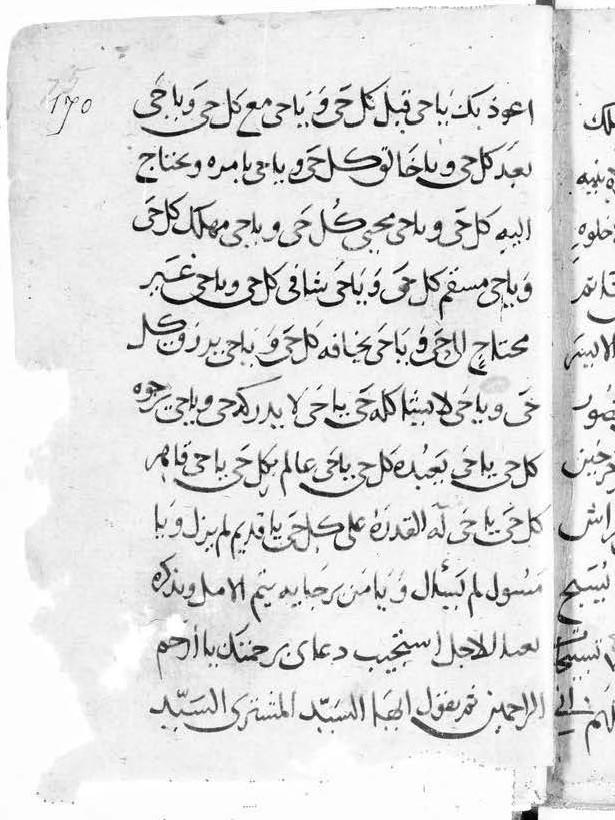 170
اعوذ بك ياحي قبل كل حَى وَ ياحى مع كل حى وياحى
بعَد كل حى وياخالق كل حَى وياحى يامره ويحتاج
اليه كل حَى وياحى محيى كُل حَى وياحى مهلك كل حَى
وَياحى مسقم كل حَى وَيَاحَى شافى كل حى وياحى غَير
محتاجٍ الى حَى وَيَاحَى يخافه كل حَى وَيَاحى يرزق كل
حَى وياحَى لا يشاكله حَى ياحَى لا يدركه حى وياحى يرجوه
كل حى ياحَى يَعبُده كل حى ياحَى عالم بكل حَى ياحى قاهر
كل حَى ياحَى له القدرَة على كل حَى ياقديم لم يزل ويا
مسَول لم يسَأل وَيامَن برحمايه يتم الامل
لعبد الاجل استجيب دعاى برحمتك ياارحم
الراحمين ثم يقول ايهَا السَيّد المشترى السَيّد